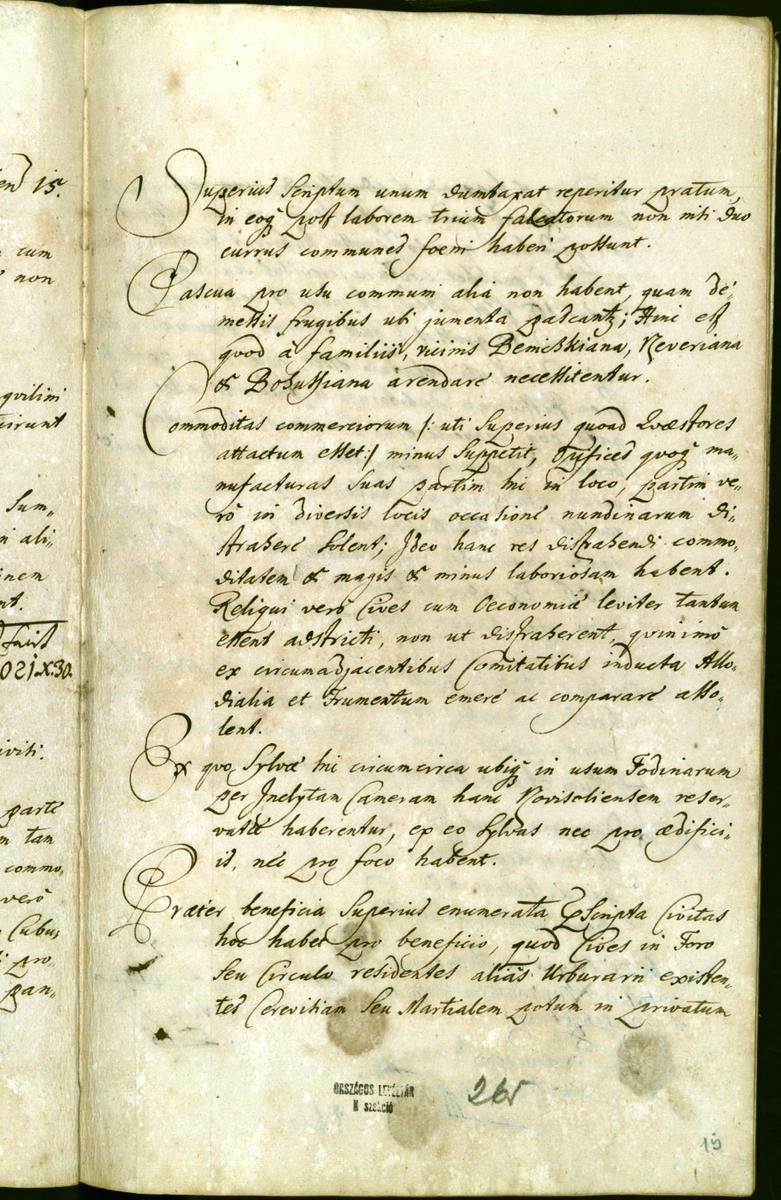 end 15.
cum
non
quilini
cirunt
Sum„
ali„
inem
nt.
fuist
021.x.30.
iviti.
parte
m tam
commo„
verò
Cubu„
pro„
pan„
Superius Scriptum unum dumtaxat reperitur pratum,
in eoq₃ post laborem trium falcatorum non nisi duo
currus communes foeni haberi possunt.
Pascua pro usu communi alia non habent, quam de„
messis frugibus ubi jumenta pascantz; Hinc est
quod à familiis, vicinis Benickiana, Reveriana
& Bohussiana arendare necessitentur.
Commoditas commerciorum /: uti Superius quoad Quæstores
attactum esset :/ minus Suppetit, Opifices quoq₃ ma„
nufacturas Suas partim hic in loco, partim ve„
rò in diversis locis occasione nundinarum di„
strahere Solent; Ideo hanc res distrahendi commo„
ditatem & magis & minus laboriosam habent.
Reliqui verò Cives cum Oeconomiæ leviter tantum
essent adstricti, non ut distraherent, quinimò
ex circumadjacentibus Comitatibus inducta Allo„
dialia et Frumentum emere ac comparare asso„
lent.
Ex quo Sylvæ hic circumcirca ubiq₃ in usum Fodinarum
per Inclytam Cameram hanc Novisoliensem reser„
vatæ haberentur, ex eo Sylvas nec pro ædifici„
is, nec pro foco habent.
Præter beneficia Superius enumerata pScripta Civitas
hoc habet pro beneficio, quod Cives in Foro
Seu Circulo residentes aliàs Urburarii existen„
tes Cerevisiam Seu Martialem potum in privatum
ORSZÁGOS LEVÉLTÁR
N szekció
265
15